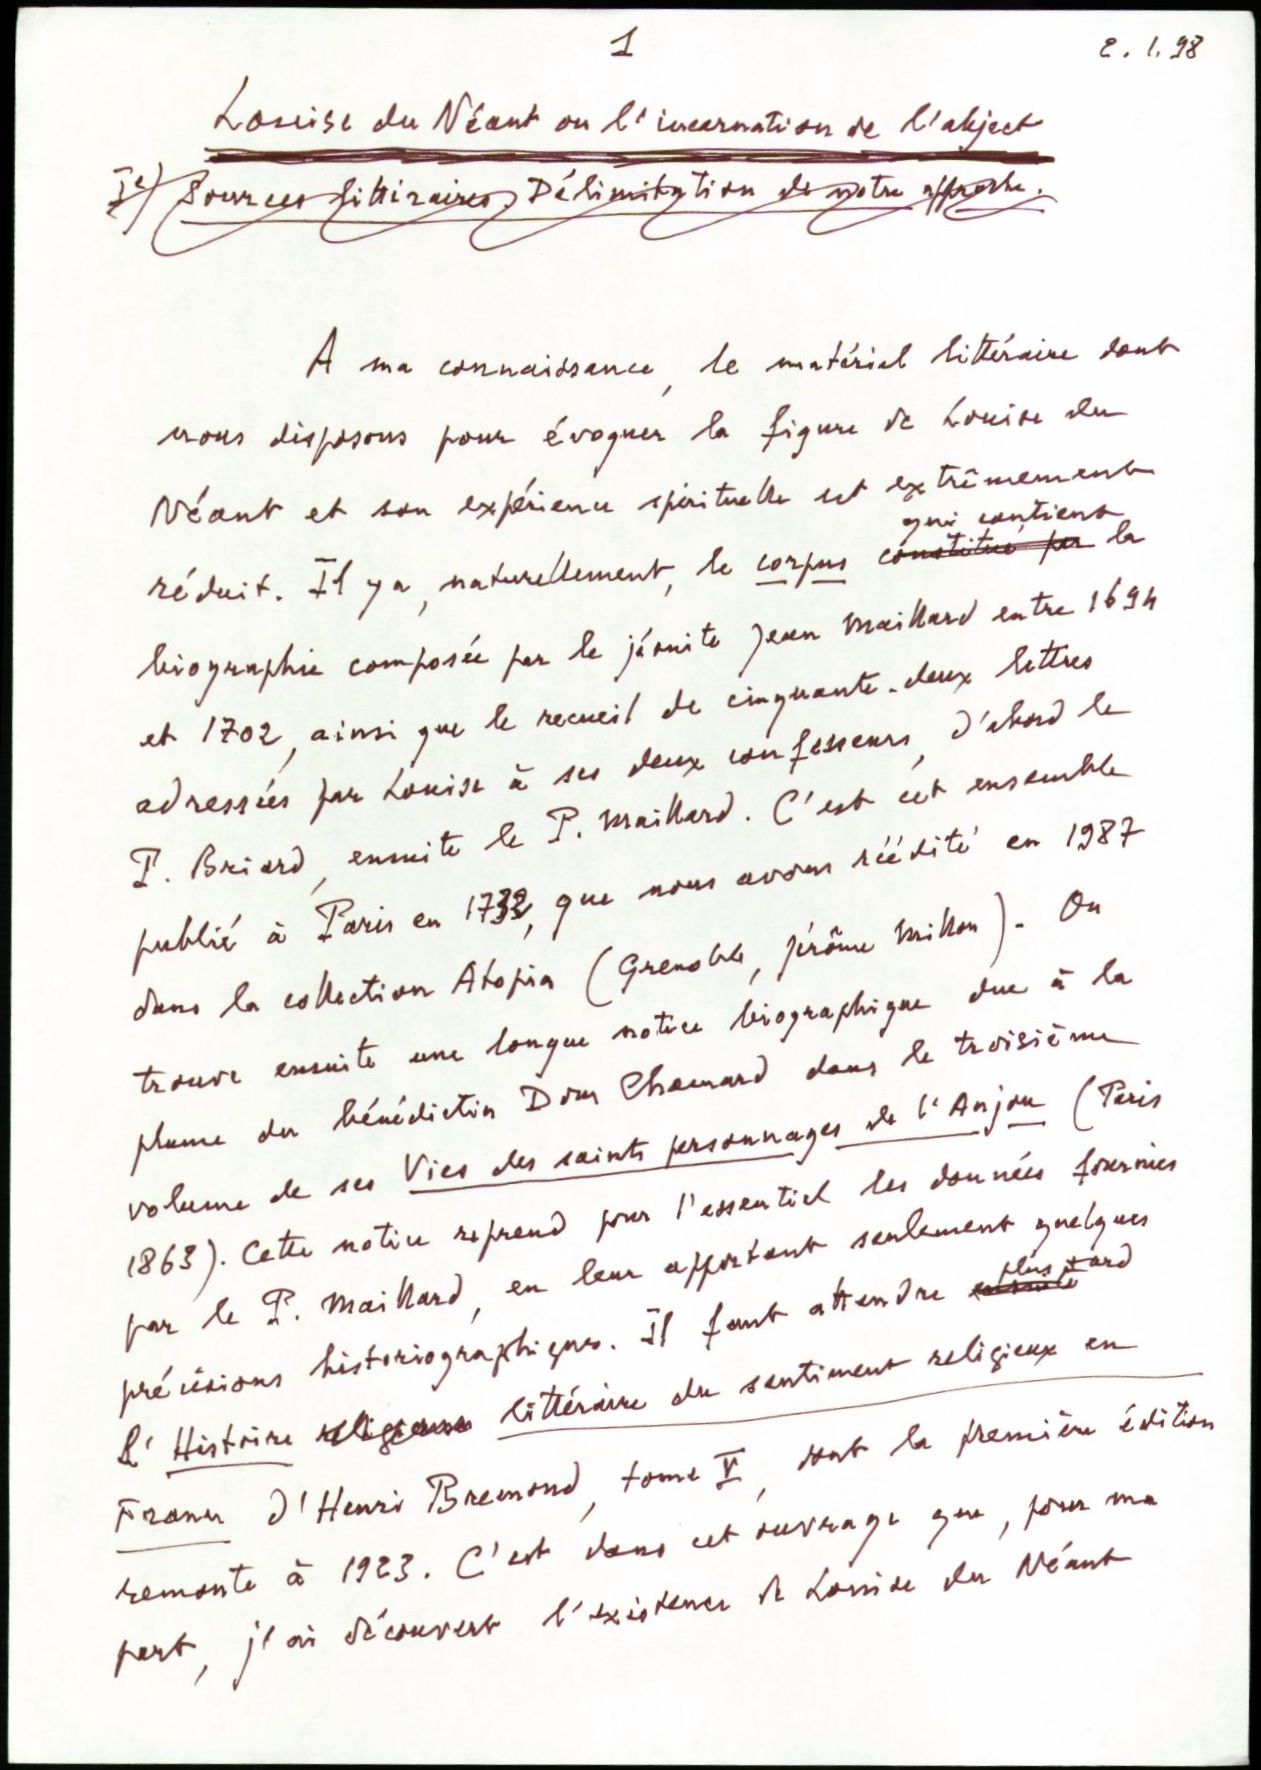 1
2.1.98
Louise du Néant ou l'incarnation de l'abject
I°) Sources littéraires. Délimitation de notre approche.
A ma connaissance, le matériel littéraire dont
nous disposons pour évoquer la figure de Louise du
Néant et son expérience spirituelle est extrêmement
qui contient
réduit. Il y a, naturellement, le corpus constitué par la
biographie composée par le jésuite Jean Maillard entre 1694
et 1702, ainsi que le recueil de cinquante-deux lettres
adressées par Louise à ses deux confesseurs, d'abord le
P. Briard, ensuite le P. Maillard. C'est cet ensemble
publié à Paris en 1732, que nous avons réédité en 1987
dans la collection Atopia (Grenoble, Jérôme Millon). On
trouve ensuite une longue notice biographique due à la
plume du bénédictin Dom Chamard dans le troisième
volume de ses Vies des saints personnages de l'Anjou (Paris
1863). Cette notice reprend pour l'essentiel les données fournies
par le P. Maillard, en leur apportant seulement quelques
plus tard
précisions historiographiques. Il faut attendre ensuite
l'Histoire religieuse littéraire du sentiment religieux en
France d'Henri Bremond, tome V, dont la première édition
remonte à 1923. C'est dans cet ouvrage que, pour ma
part, j'ai découvert l'existence de Louise du Néant